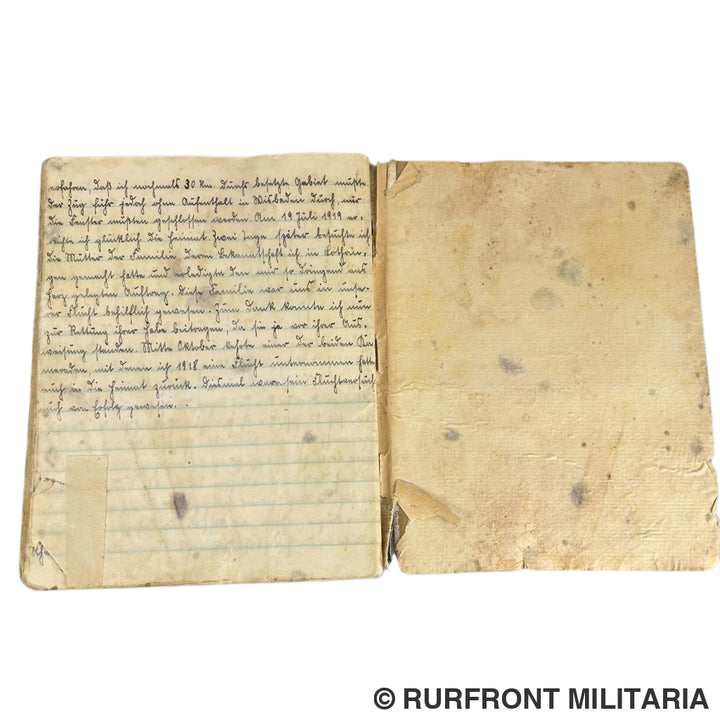 erfahren, daß ich nochmals 30 km. durchs besetzte Gebiet mußte.
Der Zug fuhr jedoch ohne Aufenthalt in Wisbaden durch, nur
die Fenster mußten geschlossen werden. Am 19 Juli 1919 er-
reichte ich glücklich die Heimat. Zwei Tage später besuchte ich
die Mutter der Familie, deren Bekanntschaft ich in Lothrin-
gen gemacht hatte und erledigte den mir so dringend ans
Herz gelegten Auftrag. Diese Familie war uns in unse-
rer Flucht behilflich gewesen. Zum Dank konnte ich nun
zur Rettung ihrer Habe beitragen, da sie ja vor ihrer Aus-
weisung standen. Mitte Oktober kehrte einer der beiden Ka-
meraden, mit denen ich 1918 eine Flucht unternommen hatte
auch in die Heimat zurück. Diesmal war sein Fluchtversuch
von Erfolg gewesen.
© RURFRONT MILITARIA